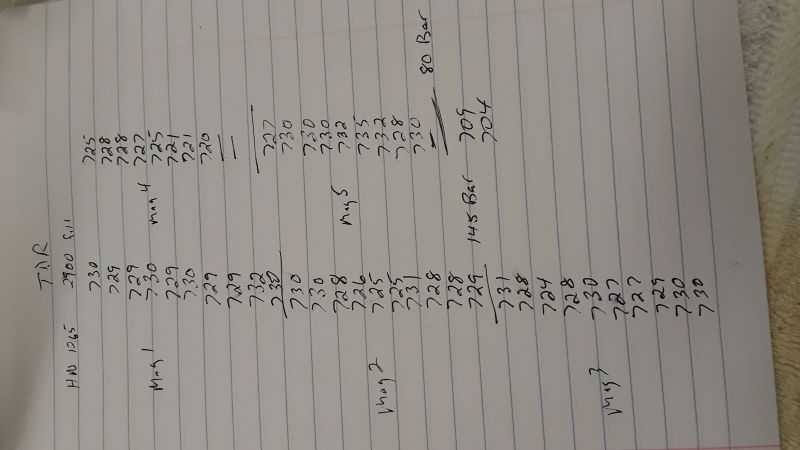 T.D.R
HND 1265 2900 Fill
730 725
729 728
729 728
Mag 1 730 Mag 4 727
729 725
730 721
729 721
729 720
732
730 727
730 730
730 730
728 730
726 Mag 5 732
725 735
Mag 2 725 732
731 728
728 730 80 Bar
728
729 145 Bar 709
731 704
728
724
728
730
Mag 3 727
727
729
730
730